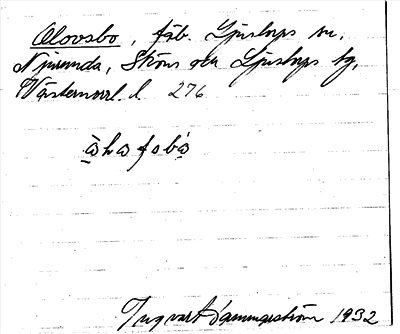 Olovsbo, fäb. Ljustorps sn,
Njurunda, Sköns och Ljustorps tg,
Västernorrl. l. 276
Ingvart Dammeström 1932